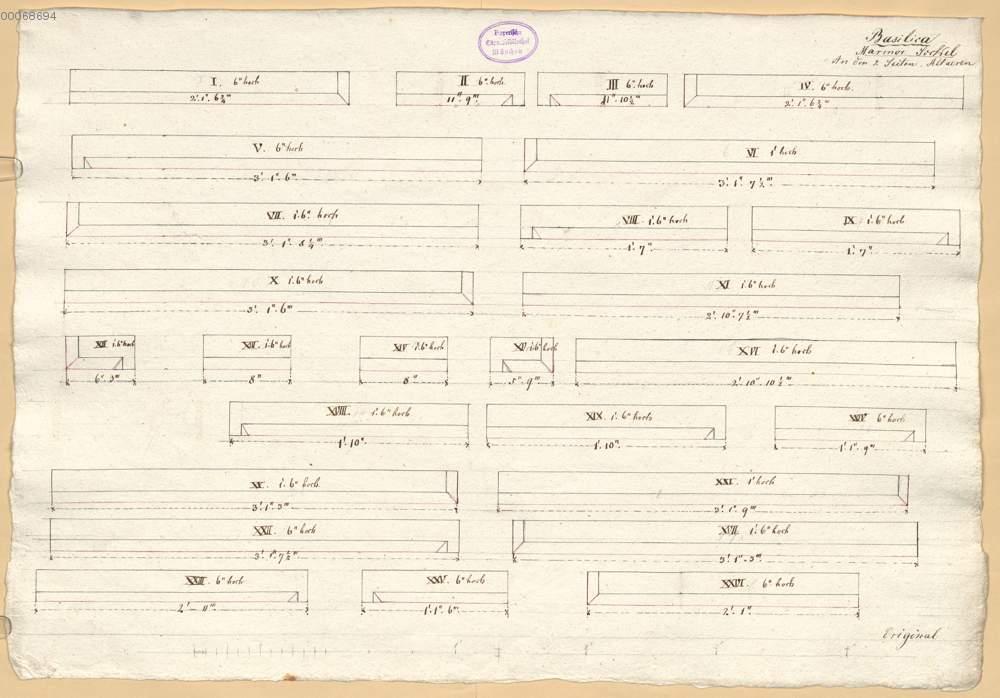 00068694
Bayerische
Staatsbibliothek
München
Basilica
Marmor Sockel
An den 2 Seiten Altaeren
I. 6" hoch
2'. 1". 6 3/4'''
II 6" hoch
11". 9'''
III 6" hoch
11". 10 1/2'''
IV. 6" hoch.
2'. 1". 6 3/4'''
V. 6" hoch
3'. 1". 6'''.
VI. 1' hoch
3'. 1". 7 1/2'''.
VII. 1'. 6". hoch
VIII. 1'. 6" hoch
1'. 7".
IX. 1'. 6" hoch
1'. 7".
X 1'. 6" hoch
3'. 1". 6'''
XI 1'. 6" hoch
2'. 10". 7 1/2'''
XII 1'. 6" hoch
6". 3'''
XIII. 1'. 6" hoch
8"
XIV. 1'. 6" hoch
8"
XV. 1'. 6" hoch
5". 9'''
XVI 1'. 6" hoch
2'. 10". 10 1/2'''.
XVIII. 1'. 6" hoch
1'. 10".
XIX. 1'. 6" hoch
1'. 10".
6" hoch
1'. 1". 9'''
XX. 1'. 6" hoch.
3'. 1". 3'''
XXI. 1' hoch
3'. 1". 9'''
XXII. 6" hoch
3'. 1". 7 1/2'''.
XVII. 1'. 6" hoch
3'. 1". 3'''
XXIII. 6" hoch
2'. 11".
XXV. 6" hoch
1'. 1". 6'''.
XXVI. 6" hoch
2'. 1".
Original